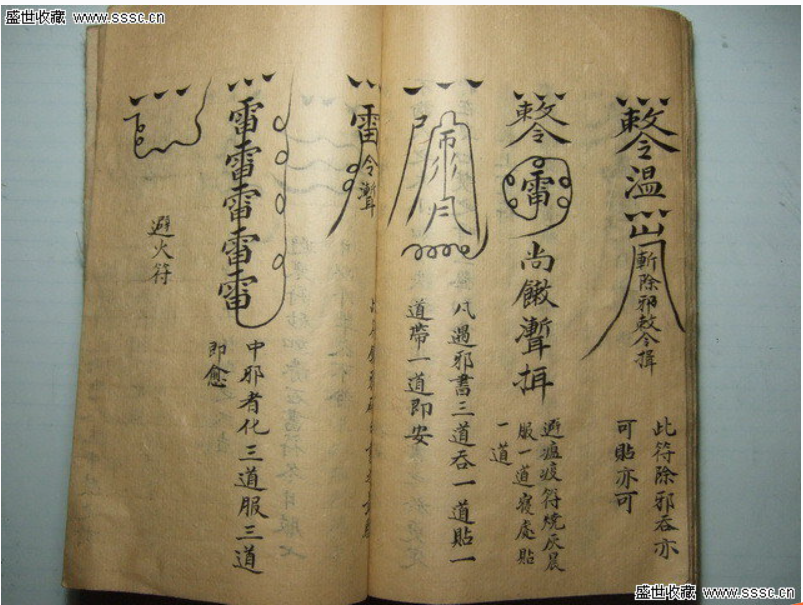 盛世收藏 www.sssc.cn
敕令溫
斬除邪敕令
此符除邪吞亦
可貼亦可
敕令雷
尚
避瘟疫符燒灰晨
服一道寢處貼
一道
凡遇邪書三道吞一道貼一
道帶一道即安
雷令
雷雷雷雷雷
中邪者化三道服三道
即愈
避火符
盛世收藏 www.sssc.cn